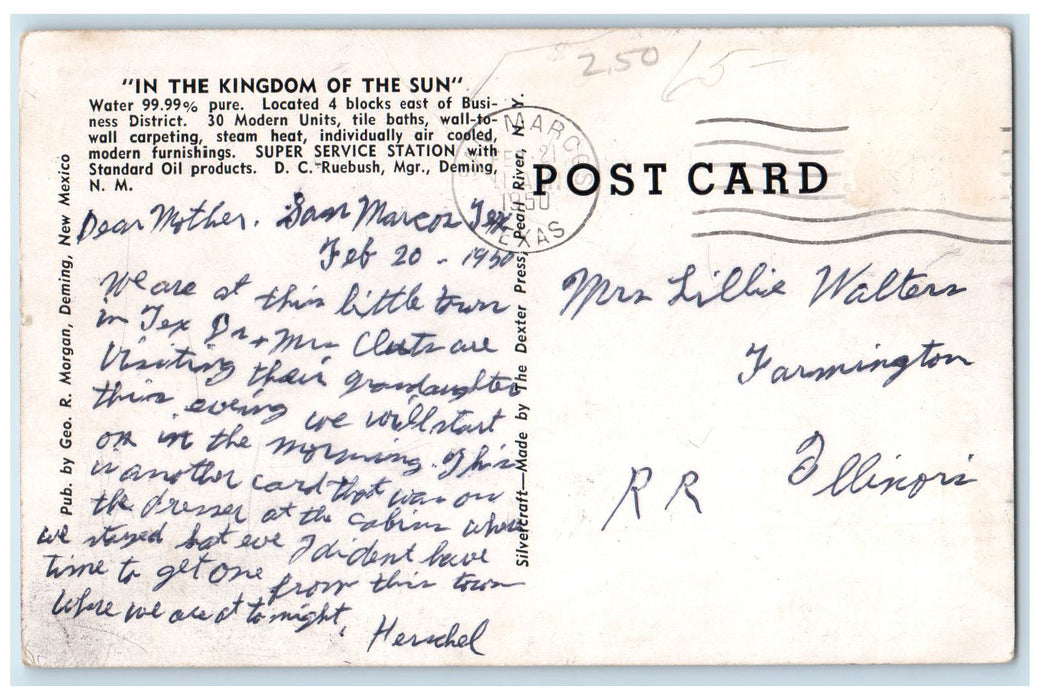 2.50
"IN THE KINGDOM OF THE SUN"
Water 99.99% pure. Located 4 blocks east of Busi-
ness District. 30 Modern Units, tile baths, wall-to-
wall carpeting, steam heat, individually air cooled,
modern furnishings. SUPER SERVICE STATION with
Standard Oil products. D. C. Ruebush, Mgr., Deming,
N. M.
Pub. by Geo. R. Morgan, Deming, New Mexico
Silvercraft—Made by The Dexter Press, Pearl River, N. Y.
SAN MARCOS
FEB 21
1950
TEXAS
POST CARD
Dear Mother. San Marcos Tex
Feb 20 - 1950
We are at this little town
in Tex Dr + Mrs Cluts are
Visiting their grandaughter
this eveing we will start
on in the morning. This
is another card that was on
the dresser at the cabins where
we stayed bat eve I dident have
time to get one from this town
where we are at to night.
Herschel
Mrs Lillie Walters
Farmington
Illinois
R R